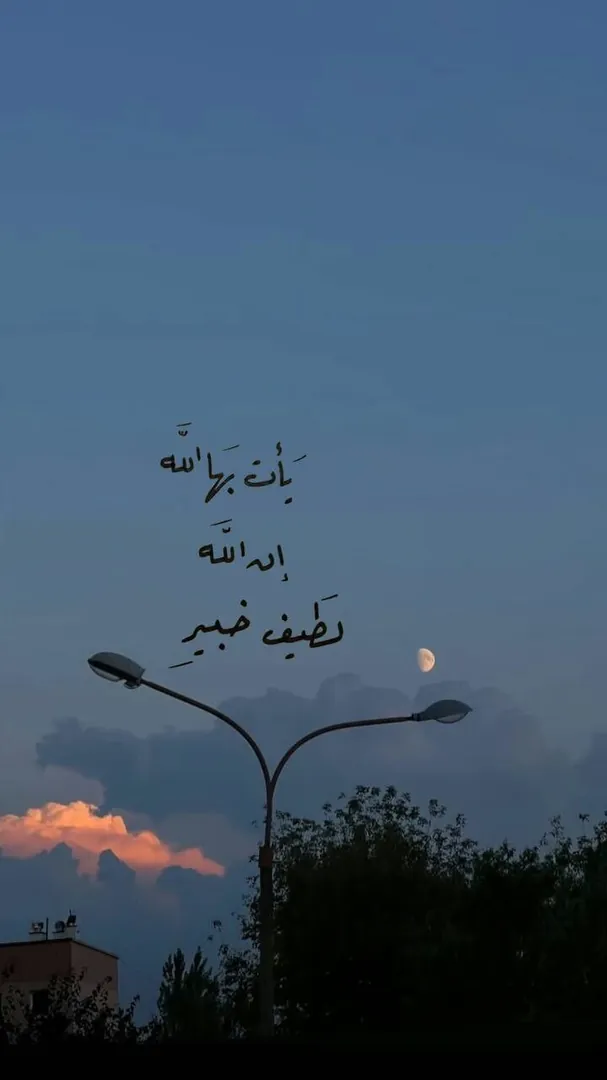 يَأْتِ بِهَا اللَّهُ
إن اللَّه
لَطِيف خبيرِ